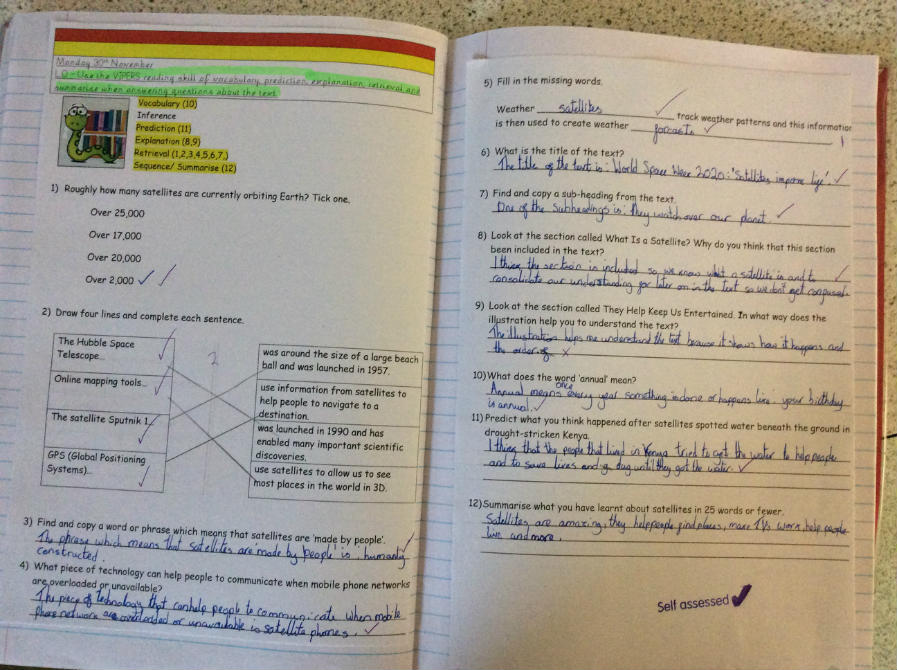 Monday 30th November
LO - Use the VIPERS reading skill of vocabulary, prediction, explanation, retrieval and
summarise when answering questions about the text.
Vocabulary (10)
Inference
Prediction (11)
Explanation (8,9)
Retrieval (1,2,3,4,5,6,7,)
Sequence/ Summarise (12)
1) Roughly how many satellites are currently orbiting Earth? Tick one.
Over 25,000
Over 17,000
Over 20,000
Over 2,000 ✓
2) Draw four lines and complete each sentence.
The Hubble Space
Telescope...
Online mapping tools...
The satellite Sputnik 1...
GPS (Global Positioning
Systems)...
2
was around the size of a large beach
ball and was launched in 1957.
use information from satellites to
help people to navigate to a
destination.
was launched in 1990 and has
enabled many important scientific
discoveries.
use satellites to allow us to see
most places in the world in 3D.
3) Find and copy a word or phrase which means that satellites are 'made by people'.
The phrase which means that satellites are 'made by people' is: humanly
constructed
4) What piece of technology can help people to communicate when mobile phone networks
are overloaded or unavailable?
The piece of technology that can help people to communicate when mobile
phone network are overloaded or unavailable is satellite phones.
5) Fill in the missing words.
Weather satellites track weather patterns and this information
is then used to create weather forcasts
6) What is the title of the text?
The title of the text is: World Space Week 2020: 'Satellites improve life'.
7) Find and copy a sub-heading from the text.
One of the subheadings is: They watch over our planet.
8) Look at the section called What Is a Satellite? Why do you think that this section
been included in the text?
I think the section is included so we know what a satellite is and to
consolidate our understanding for later on in the text so we dont get confused.
9) Look at the section called They Help Keep Us Entertained. In what way does the
illustration help you to understand the text?
The illustration helps me understand the text because it shows how it happens and
the order of x
10) What does the word 'annual' mean?
Annual means once every year something is done or happens like your birthday
is annual.
11) Predict what you think happened after satellites spotted water beneath the ground in
drought-stricken Kenya.
I think that the people that lived in Kenya tried to get the water to help people
and to save lives and dug until they got the water.
12) Summarise what you have learnt about satellites in 25 words or fewer.
Satellites are amazing, they help people find places, make TVs work, help people
live and more.
Self assessed ✓